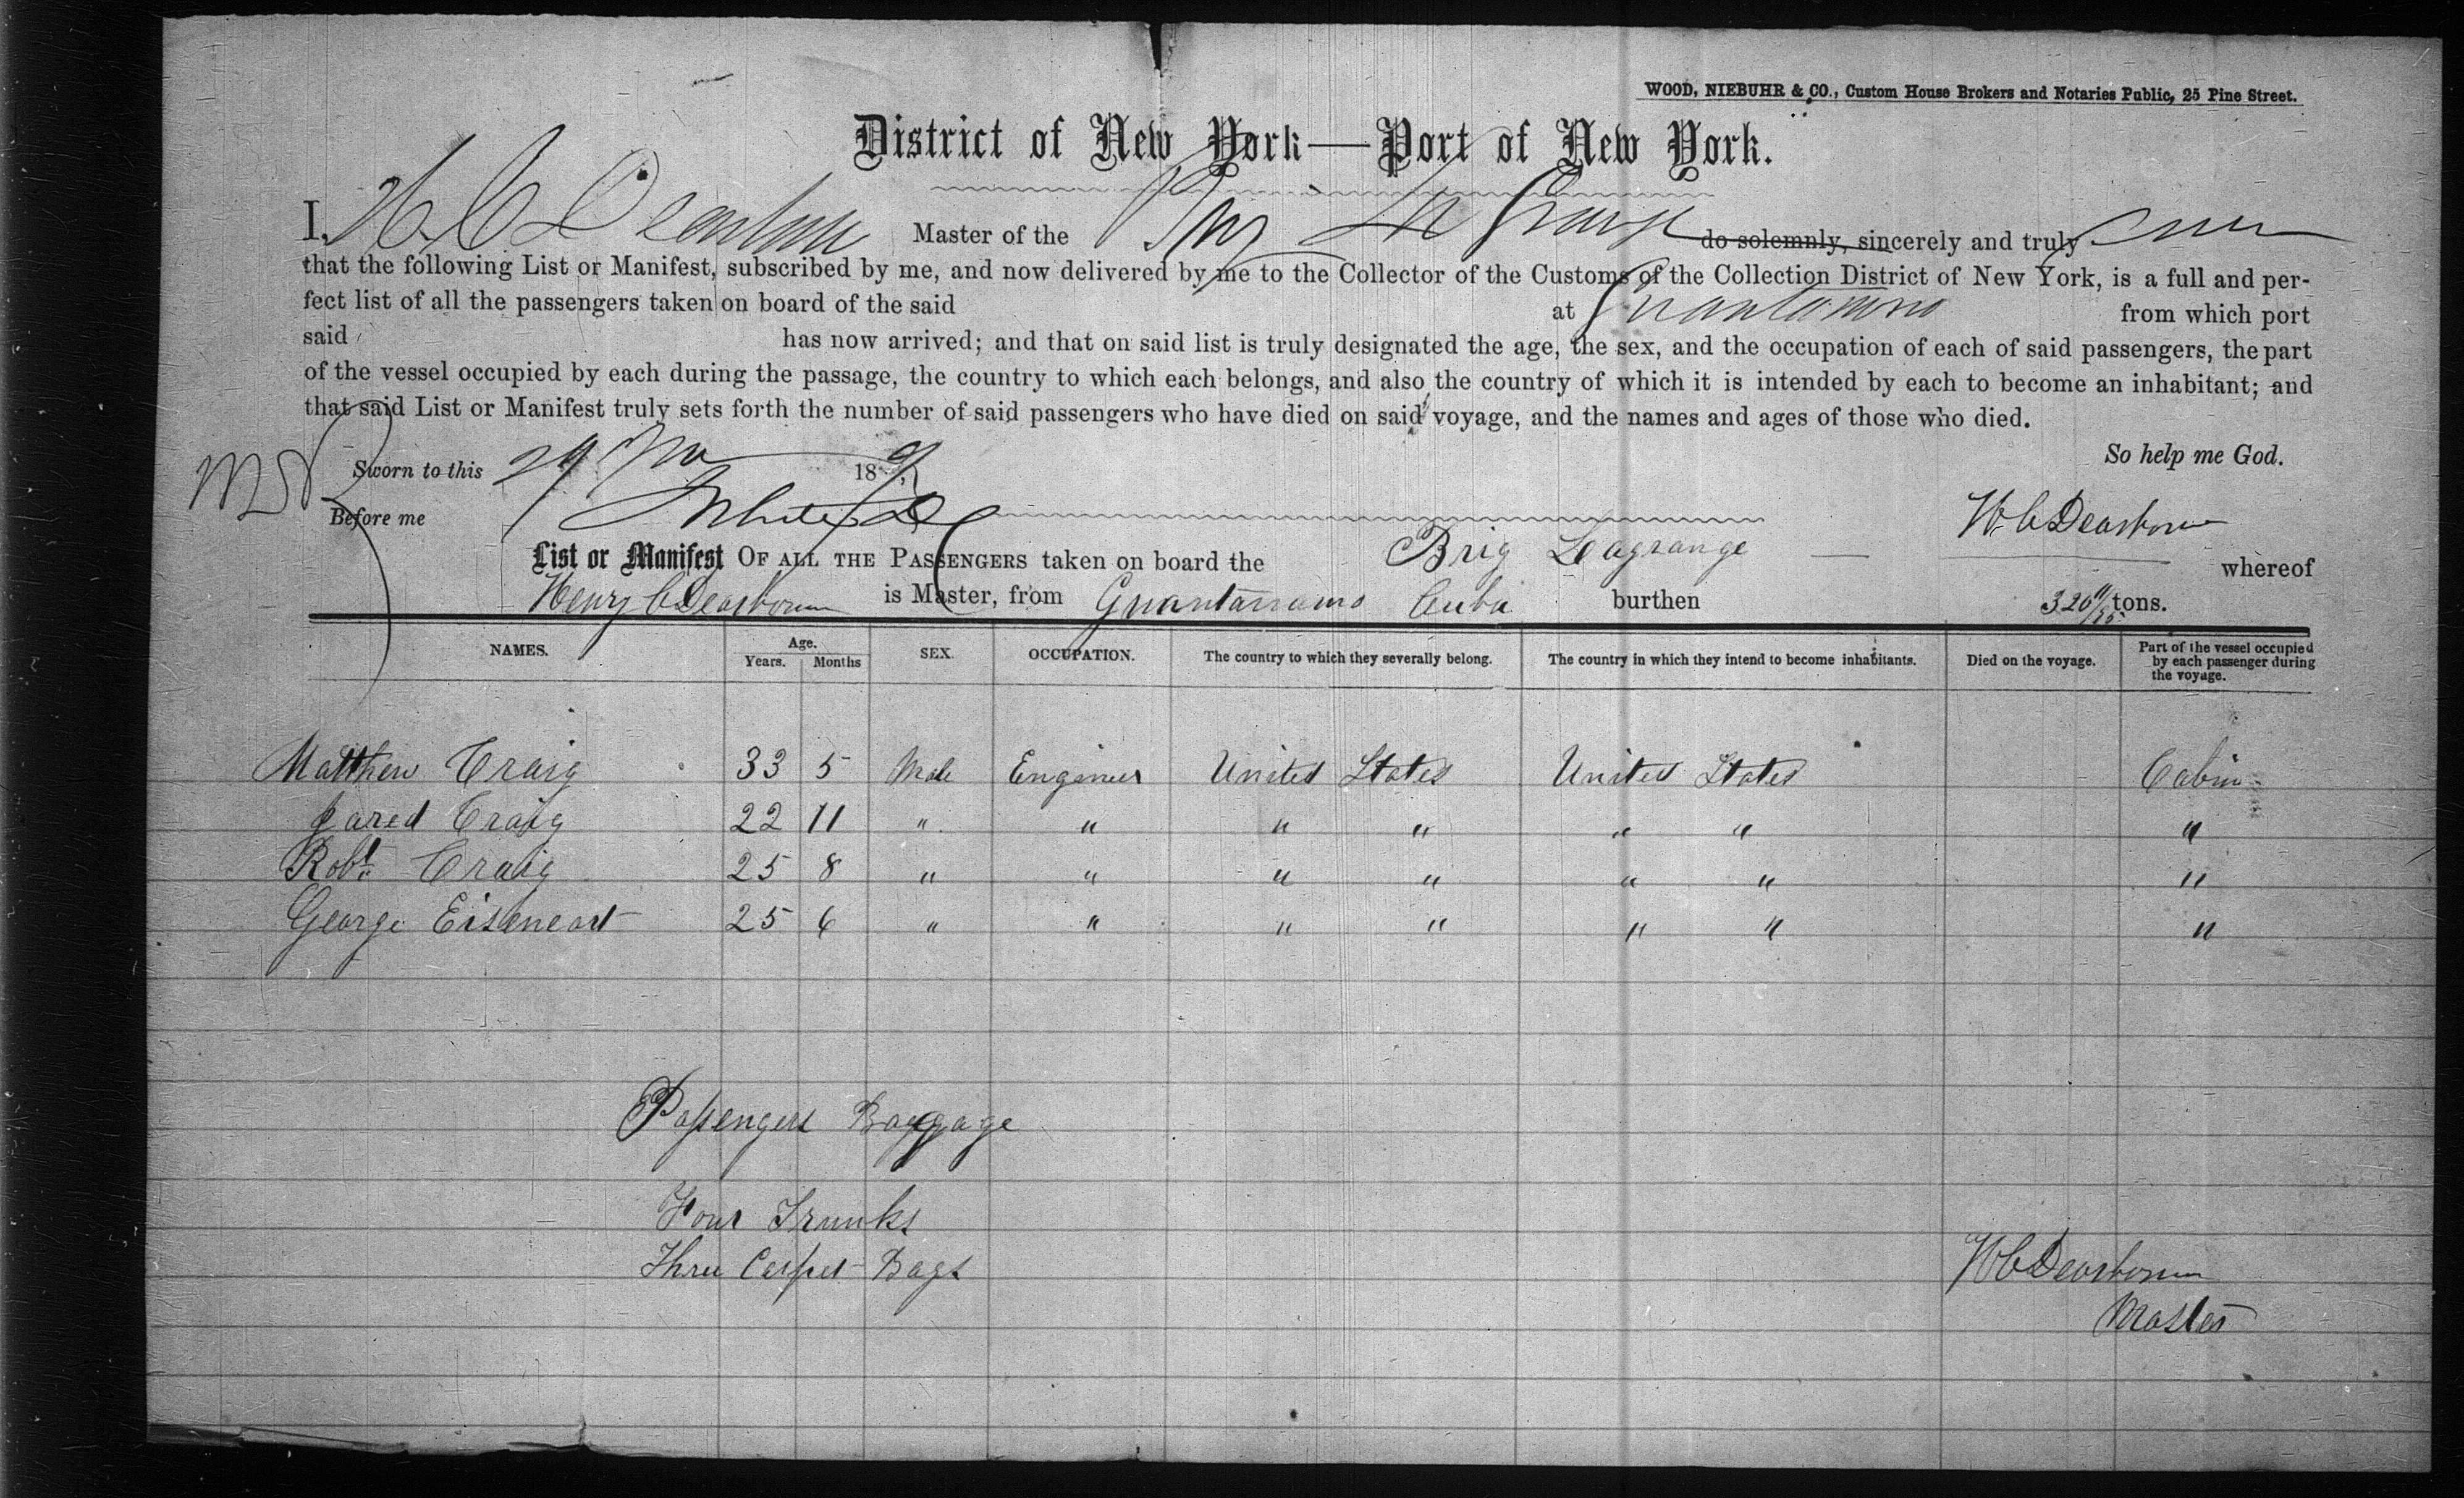 WOOD, NIEBUHR & CO., Custom House Brokers and Notaries Public, 25 Pine Street.
District of New York—Port of New York.
I, H C Dearborn Master of the Brig La Grange do solemnly, sincerely and truly
that the following List or Manifest, subscribed by me, and now delivered by me to the Collector of the Customs of the Collection District of New York, is a full and per-
fect list of all the passengers taken on board of the said at Guantanamo from which port
said has now arrived; and that on said list is truly designated the age, the sex, and the occupation of each of said passengers, the part
of the vessel occupied by each during the passage, the country to which each belongs, and also the country of which it is intended by each to become an inhabitant; and
that said List or Manifest truly sets forth the number of said passengers who have died on said voyage, and the names and ages of those who died.
So help me God.
Sworn to this 29 18
Before me
H C Dearborn
List or Manifest OF ALL THE PASSENGERS taken on board the Brig Lagrange — whereof
Henry C Dearborn is Master, from Guantanamo Cuba burthen 320 11/95 tons.
NAMES. Age. Years. Months SEX. OCCUPATION. The country to which they severally belong. The country in which they intend to become inhabitants. Died on the voyage. Part of the vessel occupied by each passenger during the voyage.
Matthew Craig 33 5 Male Engineer United States United States Cabin
Jared Craig 22 11 " " " " " " "
Robt. Craig 25 8 " " " " " " "
George Eiseneart 25 6 " " " " " " "
Passengers Baggage
Four Trunks
Three Carpet Bags
H C Dearborn
Master